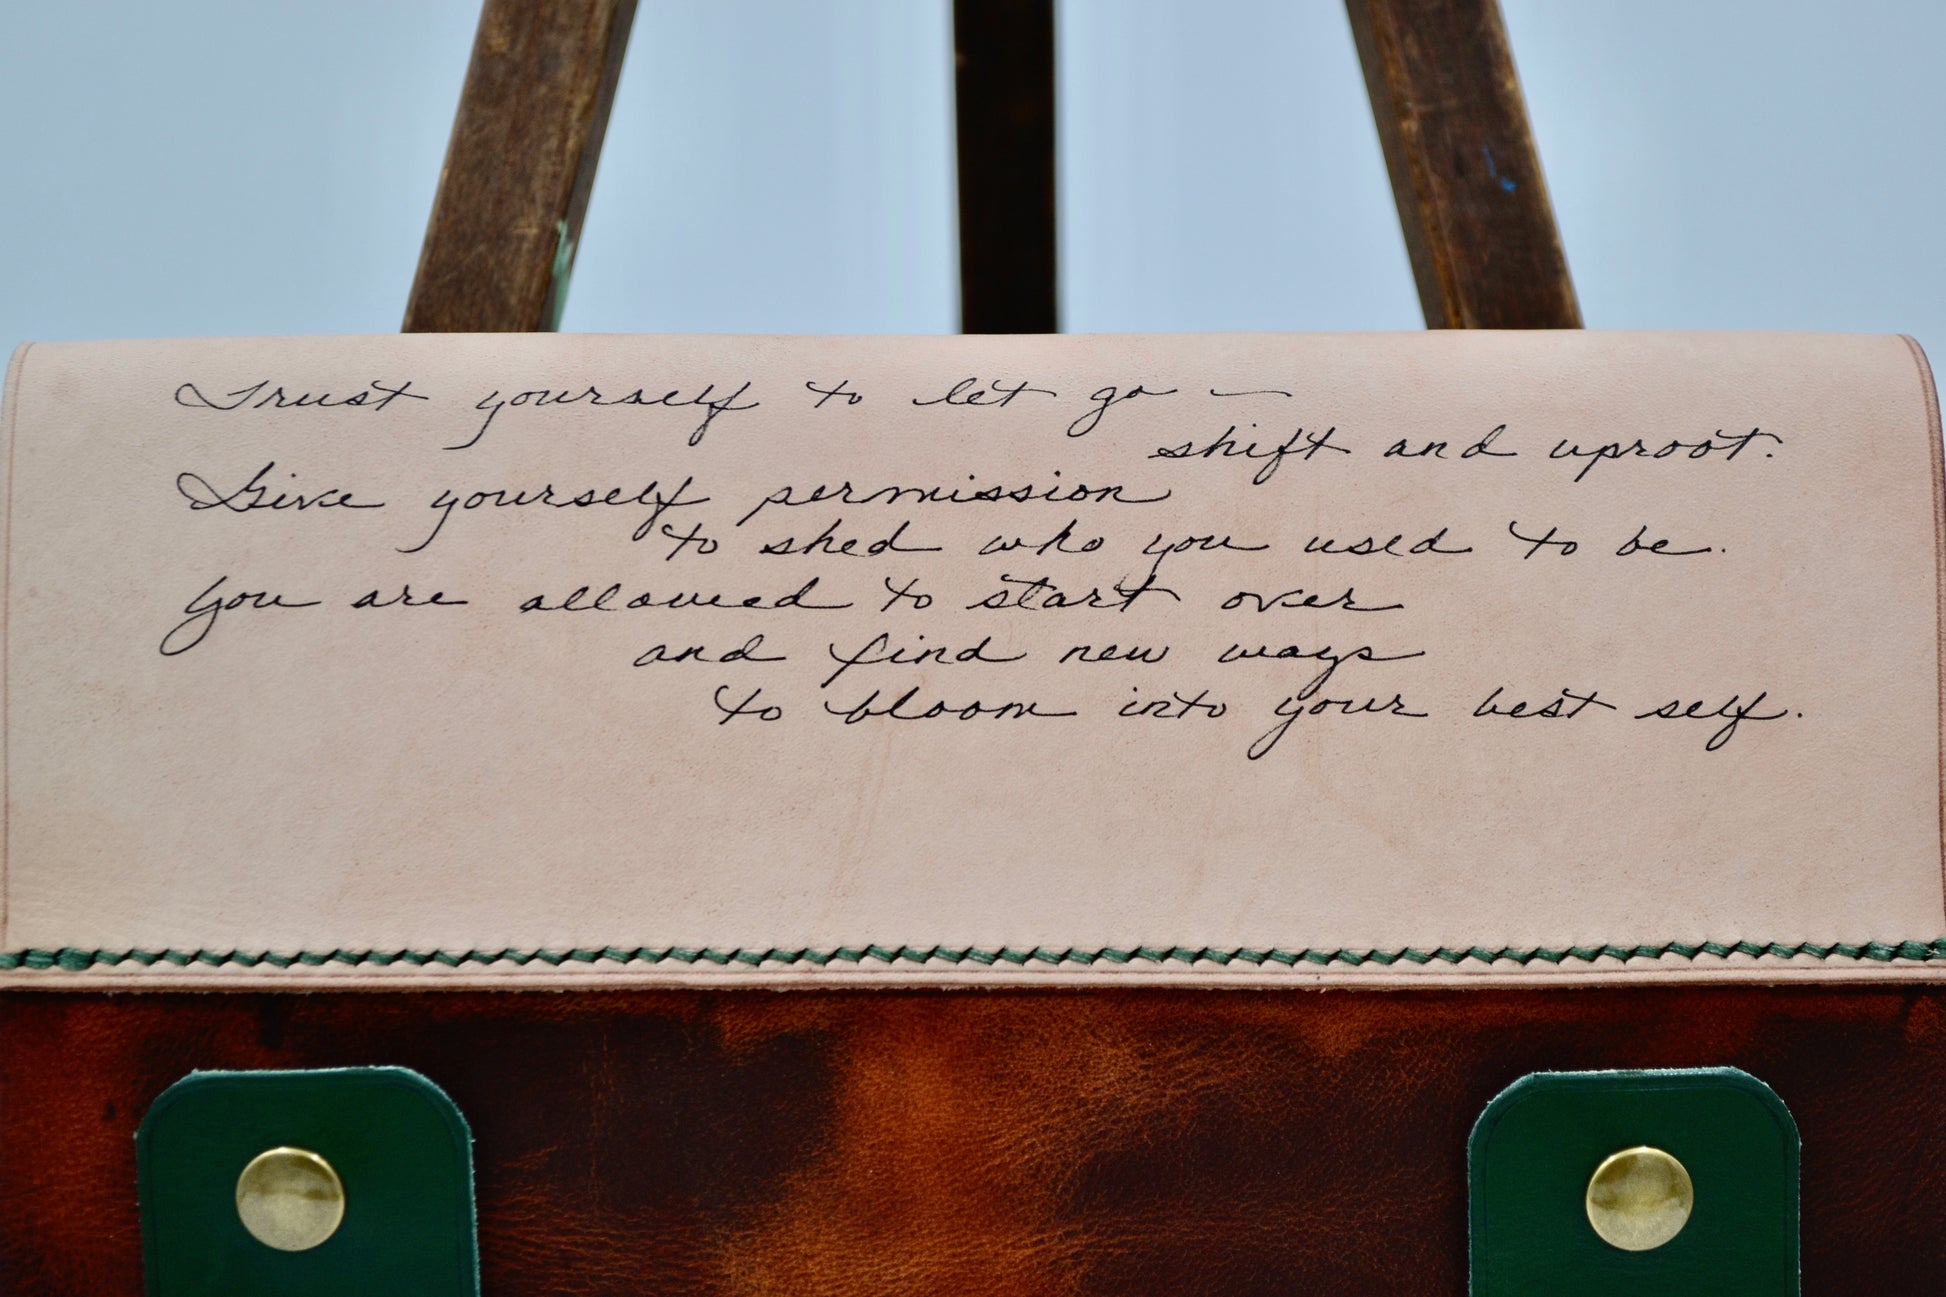 Trust yourself to let go —
shift and uproot.
Give yourself permission
to shed who you used to be.
You are allowed to start over
and find new ways
to bloom into your best self.